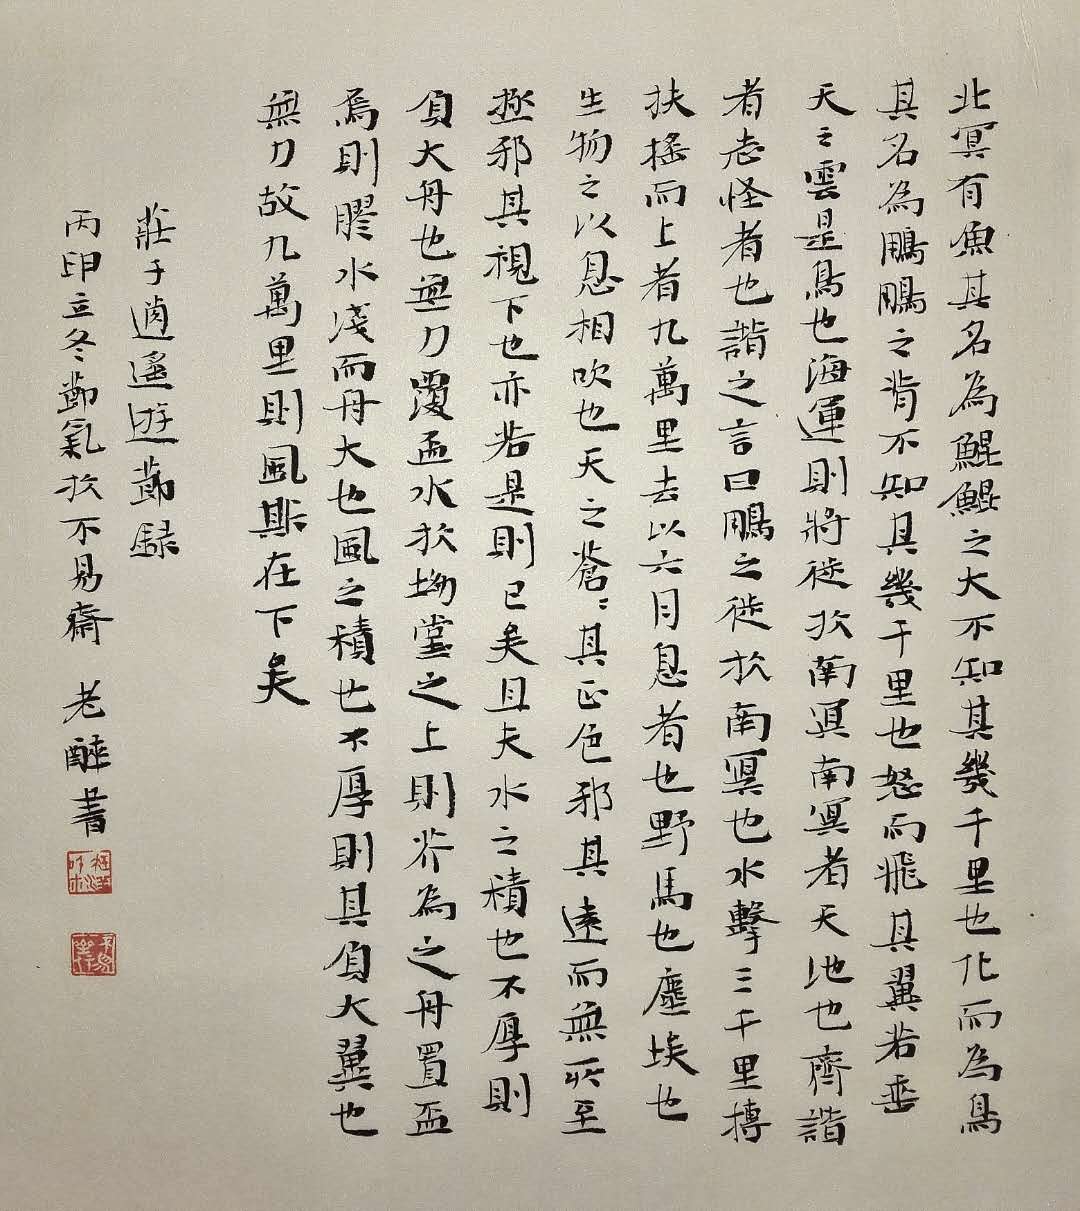 北冥有魚其名為鯤鯤之大不知其幾千里也化而為鳥
其名為鵬鵬之背不知其幾千里也怒而飛其翼若垂
天之雲是鳥也海運則將徙於南冥南冥者天池也齊諧
者志怪者也諧之言曰鵬之徙於南冥也水擊三千里摶
扶搖而上者九萬里去以六月息者也野馬也塵埃也
生物之以息相吹也天之蒼〻其正色邪其遠而無所至
極邪其視下也亦若是則已矣且夫水之積也不厚則
負大舟也無力覆盃水於坳堂之上則芥為之舟置盃
焉則膠水淺而舟大也風之積也不厚則其負大翼也
無力故九萬里則風斯在下矣
莊子逍遙遊節録
丙申立冬節氣於不易齋 老醉書